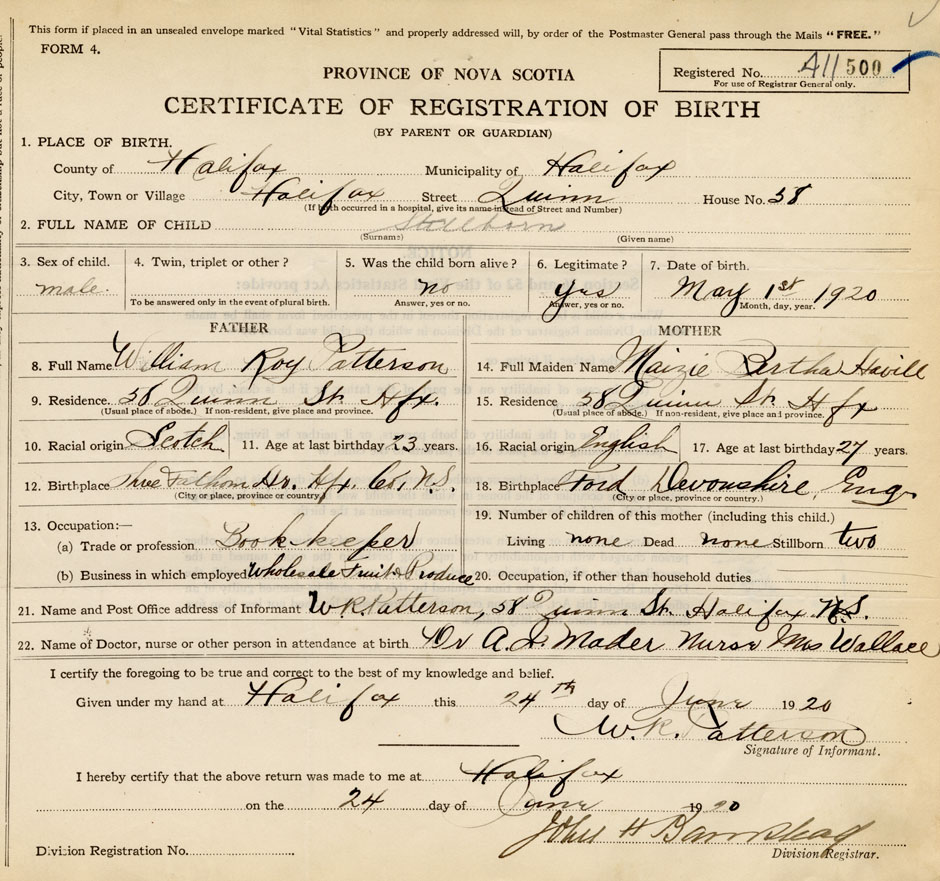 This form if placed in an unsealed envelope marked "Vital Statistics" and properly addressed will, by order of the Postmaster General pass through the Mails "FREE."
FORM 4.
PROVINCE OF NOVA SCOTIA
Registered No. A11 500
For use of Registrar General only.
CERTIFICATE OF REGISTRATION OF BIRTH
(BY PARENT OR GUARDIAN)
1. PLACE OF BIRTH.
County of Halifax Municipality of Halifax
City, Town or Village Halifax Street Quinn House No. 58
(If birth occurred in a hospital, give its name instead of Street and Number)
2. FULL NAME OF CHILD Stillborn
(Surname) (Given name)
3. Sex of child. 4. Twin, triplet or other? 5. Was the child born alive? 6. Legitimate? 7. Date of birth.
male. no yes May 1st 1920
To be answered only in the event of plural birth. Answer, yes or no. Answer, yes or no. Month, day, year.
FATHER MOTHER
8. Full Name William Roy Patterson 14. Full Maiden Name Maizie Bertha Havill
9. Residence. 58 Quinn St. Hfx. 15. Residence 58 Quinn St. Hfx
(Usual place of abode.) If non-resident, give place and province. (Usual place of abode.) If non-resident, give place and province.
10. Racial origin Scotch 11. Age at last birthday 23 years. 16. Racial origin English 17. Age at last birthday 27 years.
12. Birthplace Three Fathom Hr. Hfx. Co., N.S. 18. Birthplace Ford Devonshire, Eng.
(City or place, province or country.) (City or place, province or country.)
13. Occupation:— 19. Number of children of this mother (including this child.)
(a) Trade or profession Bookkeeper Living none Dead none Stillborn two
(b) Business in which employed Wholesale Fruit & Produce 20. Occupation, if other than household duties
21. Name and Post Office address of Informant W R Patterson, 58 Quinn St. Halifax N.S.
22. Name of Doctor, nurse or other person in attendance at birth Dr A. I. Mader Nurse Mrs Wallace
I certify the foregoing to be true and correct to the best of my knowledge and belief.
Given under my hand at Halifax this 24th day of June 1920
W. R. Patterson
Signature of Informant.
I hereby certify that the above return was made to me at Halifax
on the 24 day of June 1920
John H
Division Registration No. Division Registrar.